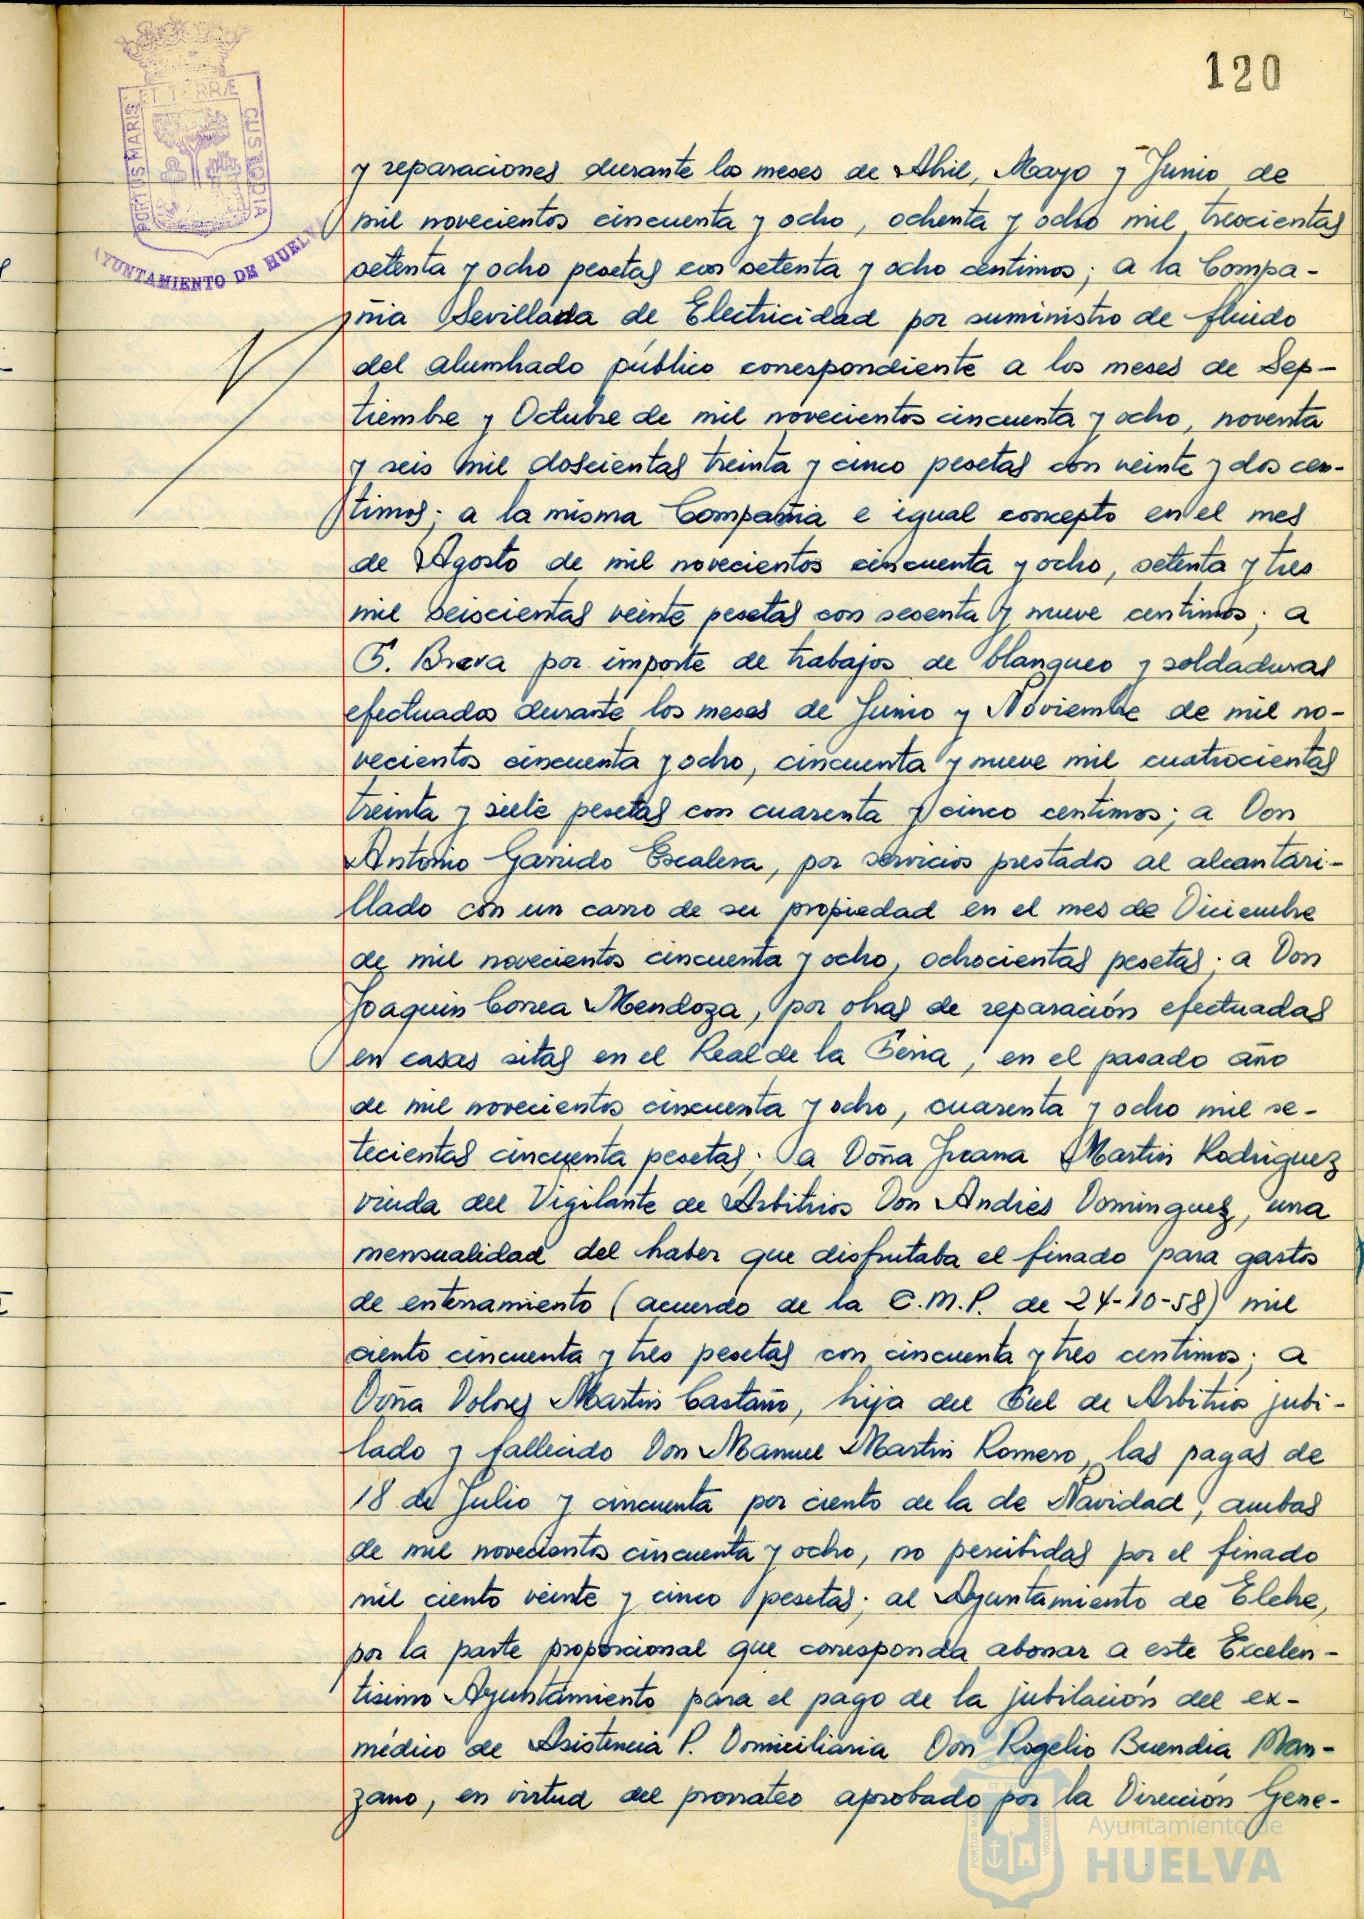 120
PORTUS MARIS ET TERRÆ CUSTODIA
AYUNTAMIENTO DE HUELVA
y reparaciones durante los meses de Abril, Mayo y Junio de
mil novecientos cincuenta y ocho, ochenta y ocho mil trescientas
setenta y ocho pesetas con setenta y ocho centimos; a la Compa-
ñia Sevillana de Electricidad por suministro de fluido
del alumbrado público correspondiente a los meses de Sep-
tiembre y Octubre de mil novecientos cincuenta y ocho, noventa
y seis mil doscientas treinta y cinco pesetas con veinte y dos cen-
timos; a la misma Compañia e igual concepto en el mes
de Agosto de mil novecientos cincuenta y ocho, setenta y tres
mil seiscientas veinte pesetas con sesenta y nueve centimos; a
F. Brava por importe de trabajos de blanqueo y soldaduras
efectuados durante los meses de Junio y Noviembre de mil no-
vecientos cincuenta y ocho, cincuenta y nueve mil cuatrocientas
treinta y siete pesetas con cuarenta y cinco centimos; a Don
Antonio Garrido Escalera, por servicios prestados al alcantari-
llado con un carro de su propiedad en el mes de Diciembre
de mil novecientos cincuenta y ocho, ochocientas pesetas; a Don
Joaquin Correa Mendoza, por obras de reparación efectuadas
en casas sitas en el Real de la Feria, en el pasado año
de mil novecientos cincuenta y ocho, cuarenta y ocho mil se-
tecientas cincuenta pesetas; a Doña Juana Martin Rodriguez
viuda del Vigilante de Arbitrios Don Andrés Dominguez, una
mensualidad del haber que disfrutaba el finado para gastos
de enterramiento (acuerdo de la C.M.P. de 24-10-58) mil
ciento cincuenta y tres pesetas con cincuenta y tres centimos; a
Doña Dolores Martin Castaño, hija del Fiel de Arbitrios jubi-
lado y fallecido Don Manuel Martin Romero, las pagas de
18 de Julio y cincuenta por ciento de la de Navidad, ambas
de mil novecientos cincuenta y ocho, no percibidas por el finado
mil ciento veinte y cinco pesetas; al Ayuntamiento de Elche,
por la parte proporcional que corresponda abonar a este Excelen-
tisimo Ayuntamiento para el pago de la jubilación del ex-
médico de Asistencia P. Domiciliaria Don Rogelio Buendia Man-
zano, en virtud del prorrateo aprobado por la Dirección Gene-
Ayuntamiento de
HUELVA